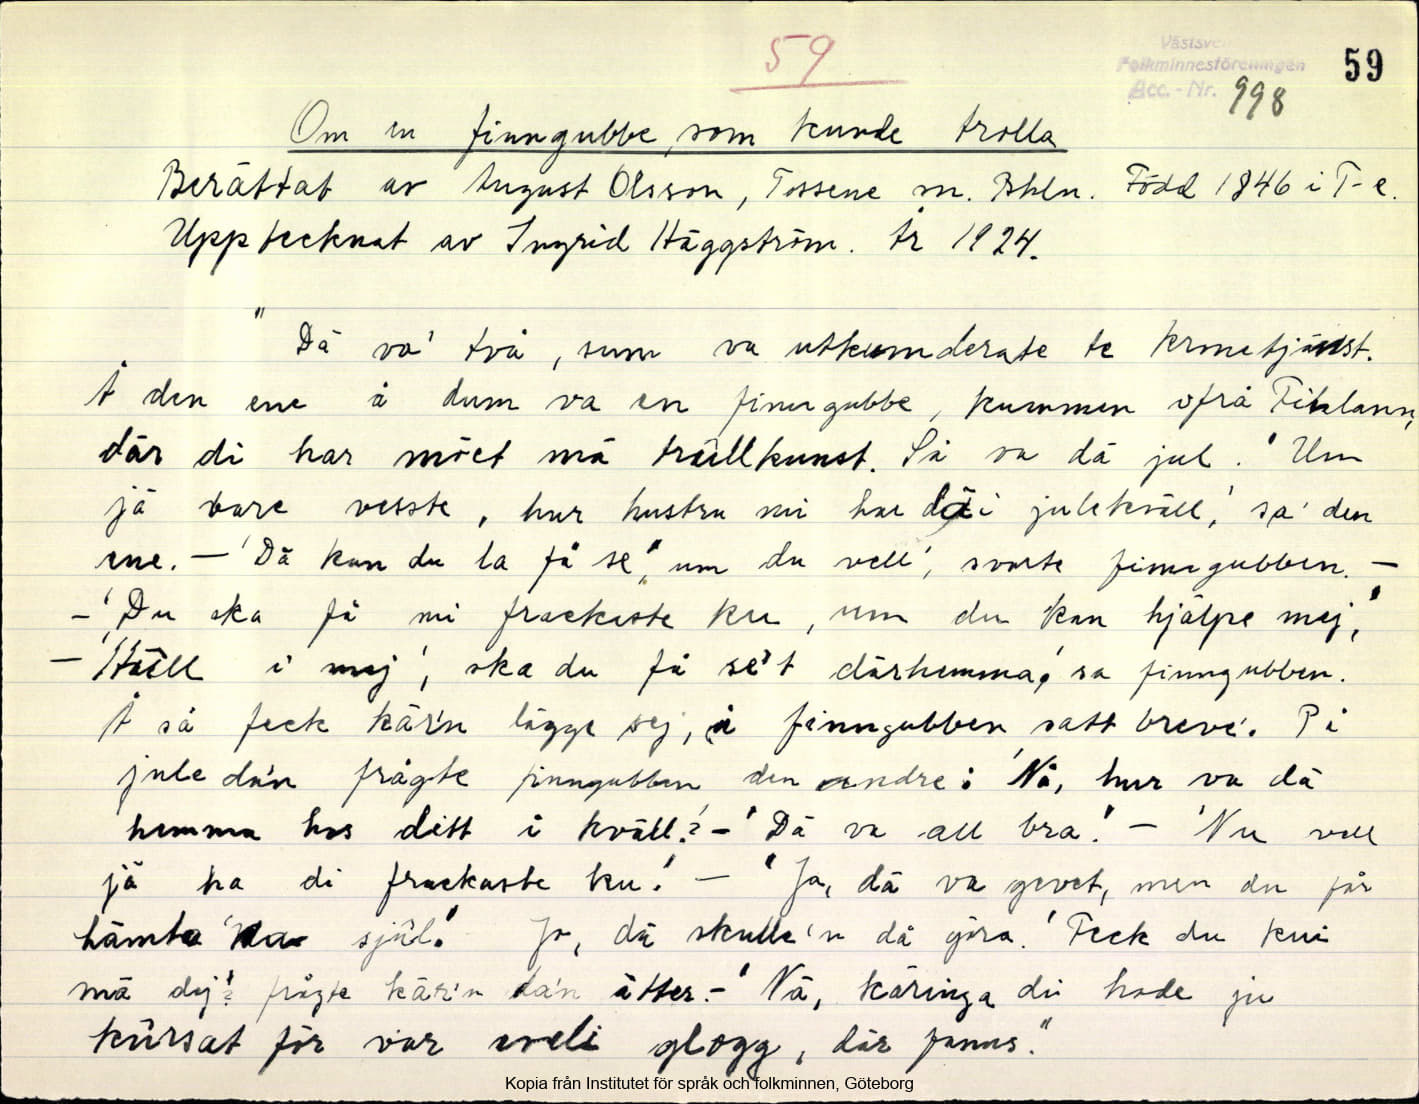 59
Västsve
Folkminnesföreningen
Acc.-Nr. 998
59
Om en finngubbe, som kunde trolla
Berättat av August Olsson, Tossene sn. Bhln. Född 1846 i T-e.
Upptecknat av Ingrid Häggström. År 1924.
"Dä va' två, sum va utkumderate te kronetjänst.
Å den ene å dum va en finngubbe, kummen ofrå Finlann,
där di har möet mä trullkunst. Så va dä jul. 'Um
jä bare vesste, hur hustru mi har dä i julekväll', sa' den
ene. — 'Dä kan du la få se, um du vell', svarte finngubben. —
— 'Du ska få mi frackaste ku, um du kan hjälpe mej,'
— 'Håll i mej', ska du få se't därhemma,' sa finngubben.
Å så feck kär'n lägge sej, å finngubben satt breve'. På
jule da'n frågte finngubben den andre: 'Nå, hur va dä
hemma hos ditt i kväll?' — 'Dä va all bra.' — 'Nu vell
jä ha di frackaste ku.' — 'Ja, dä va gevet, men du får
hämta 'na själ.' Jo, dä skulle'n då göra. 'Feck du kui
mä dej?' frågte kär'n da'n ätter. — 'Nä, käringa di hade ju
kûrsat för var eveli glogg, där fanns."
Kopia från Institutet för språk och folkminnen, Göteborg